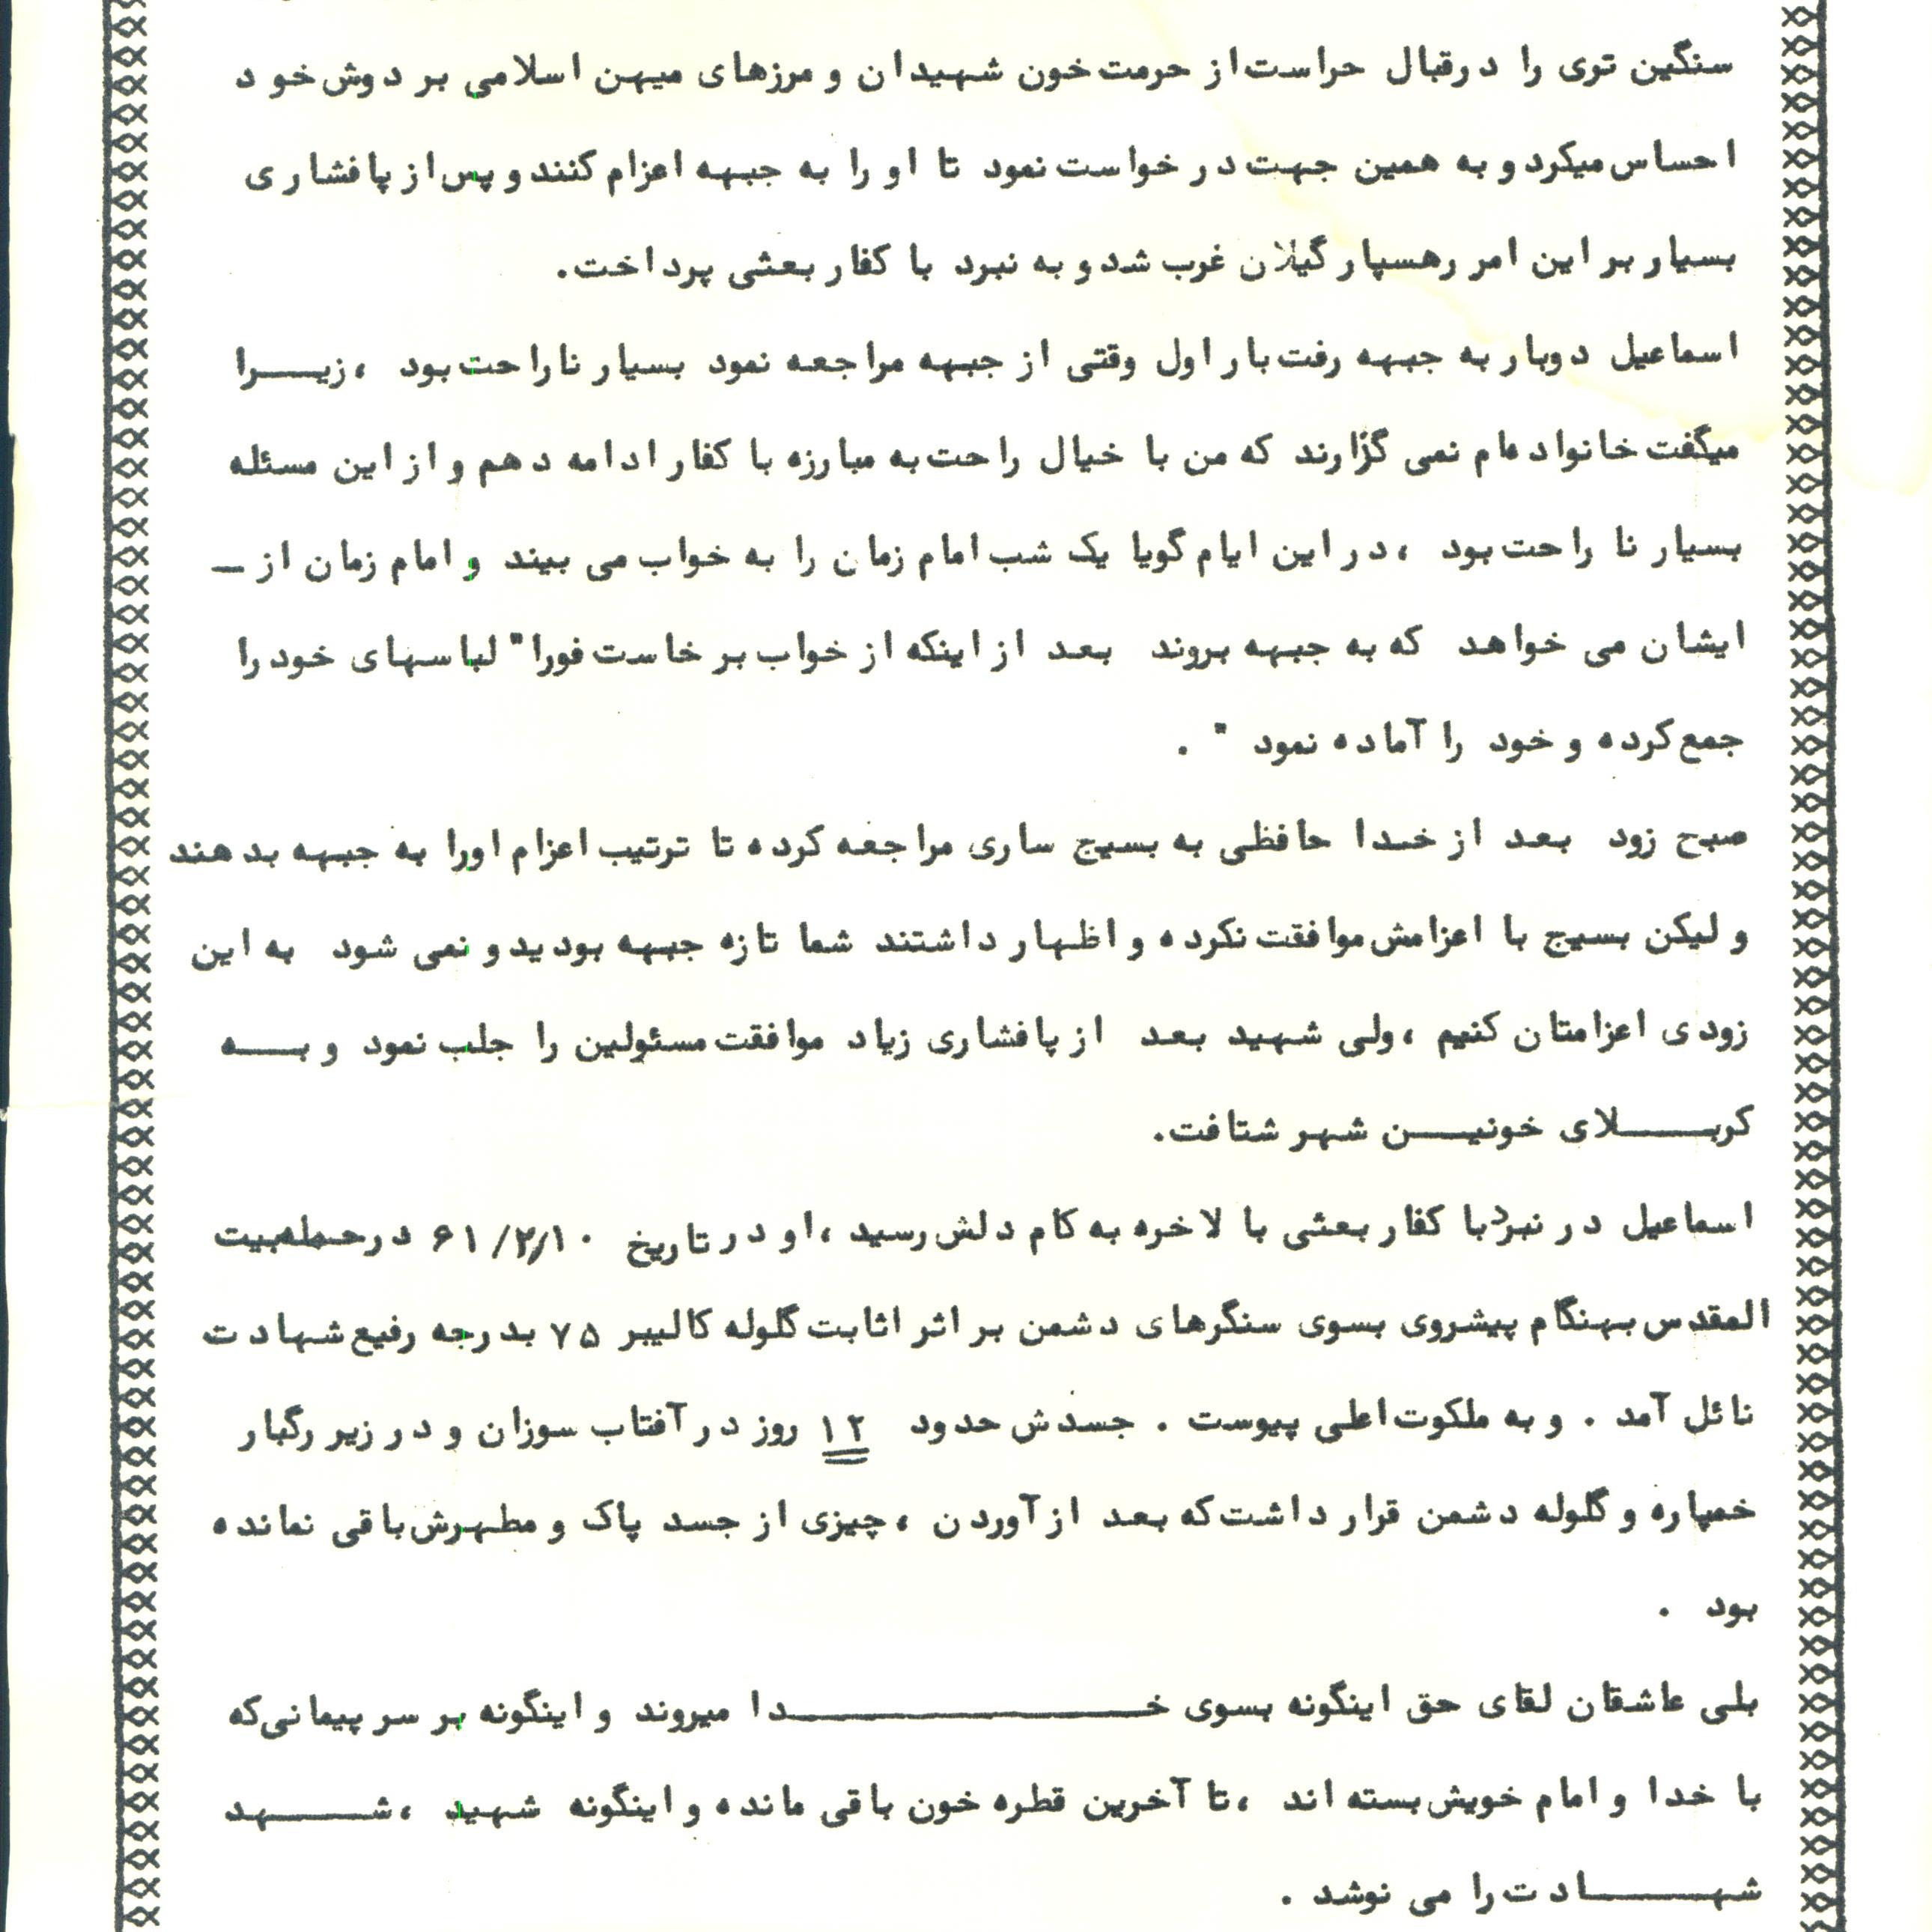 سنگین تری را درقبال حراست از حرمت خون شهیدان و مرزهای میهن اسلامی بر دوش خود
احساس میکرد و به همین جهت درخواست نمود تا او را به جبهه اعزام کنند و پس از پافشاری
بسیار بر این امر رهسپار گیلان غرب شد و به نبرد با کفار بعثی پرداخت.
اسماعیل دوبار به جبهه رفت بار اول وقتی از جبهه مراجعه نمود بسیار ناراحت بود ، زیـــرا
میگفت خانواده‌ام نمی گزارند که من با خیال راحت به مبارزه با کفار ادامه دهم و از این مسئله
بسیار نا راحت بود ، در این ایام گویا یک شب امام زمان را به خواب می بیند و امام زمان از ـ
ایشان می خواهد که به جبهه بروند بعد از اینکه از خواب بر خاست فورا" لباسهای خود را
جمع کرده و خود را آماده نمود " .
صبح زود بعد از خدا حافظی به بسیج ساری مراجعه کرده تا ترتیب اعزام اورا به جبهه بدهند
و لیکن بسیج با اعزامش موافقت نکرده و اظهار داشتند شما تازه جبهه بودید و نمی شود به این
زودی اعزامتان کنیم ، ولی شهید بعد از پافشاری زیاد موافقت مسئولین را جلب نمود و بـــه
کربـــــلای خونیـــن شهر شتافت.
اسماعیل در نبرد با کفار بعثی با لاخره به کام دلش رسید ، او در تاریخ ۶۱/۲/۱۰ در حمله بیت
المقدس بهنگام پیشروی بسوی سنگرهای دشمن بر اثر اثابت گلوله کالیبر ۷۵ بدرجه رفیع شهادت
نائل آمد . و به ملکوت اعلی پیوست . جسدش حدود ۱۲ روز در آفتاب سوزان و در زیر رگبار
خمپاره و گلوله دشمن قرار داشت که بعد از آوردن ، چیزی از جسد پاک و مطهرش باقی نمانده
بود .
بلی عاشقان لقای حق اینگونه بسوی خــــــــــــــدا میروند و اینگونه بر سر پیمانی که
با خدا و امام خویش بسته اند ، تا آخرین قطره خون باقی مانده و اینگونه شهید ، شـــــهد
شهـــــادت را می نوشد .